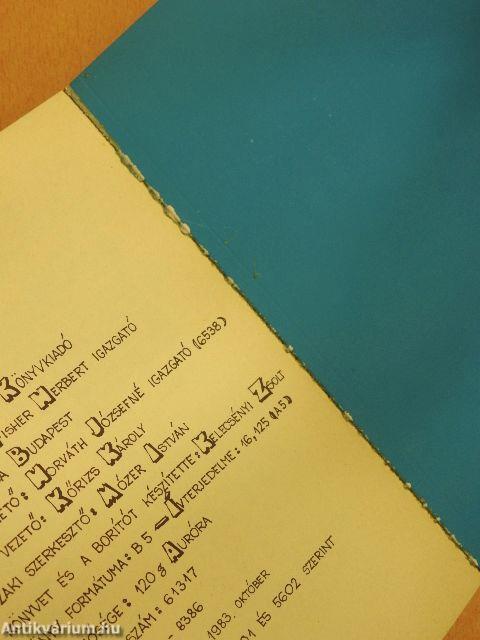 KÖNYVKIADÓ
FISHER HERBERT IGAZGATÓ
BUDAPEST
HORVÁTH JÓZSEFNÉ IGAZGATÓ (6538)
VEZETŐ: KŐRIZS KÁROLY
SZERKESZTŐ: MÓZER ISTVÁN
KÖNYVET ÉS A BORÍTÓT KÉSZÍTETTE: KELECSÉNYI ZSOLT
A FORMÁTUMA: B5 – ÍTERJEDELME: 16,125 (A5)
120 g AURÓRA
SZÁM: 61317
8386
1983. OKTÓBER
ÉS 5602 SZERINT
Antikvárium.hu